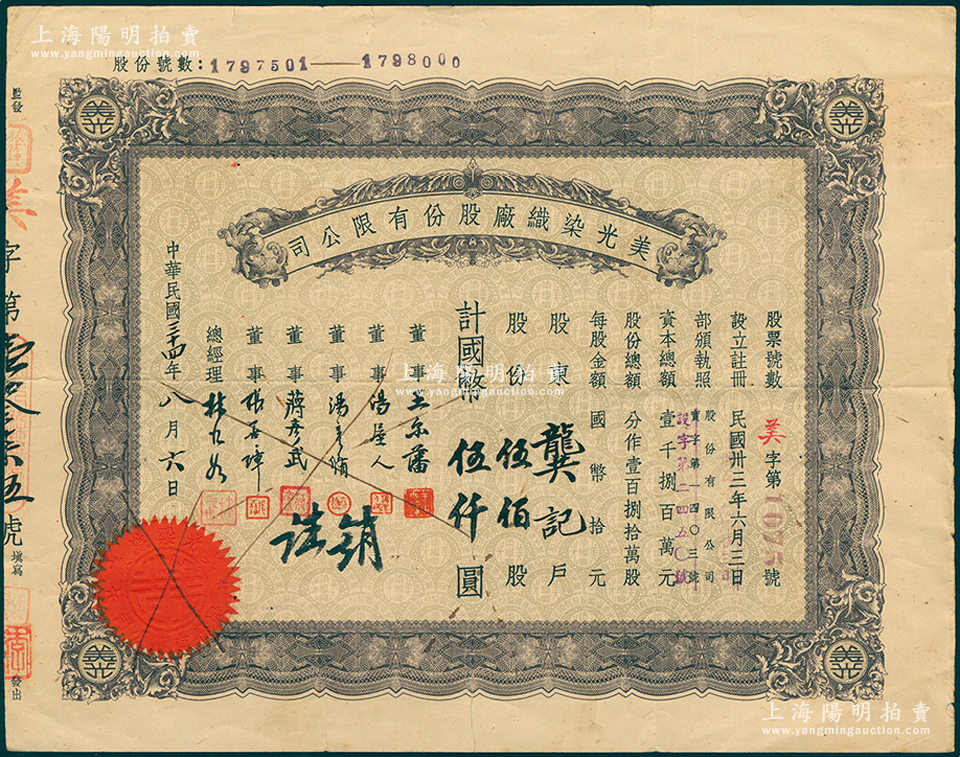 上海陽明拍賣
www.yangmingauction.com
股份號數：1797501—1798000
美光染織廠股份有限公司
股票號數 美字第11075號
設立註冊 民國卅三年六月三日
部頒執照 股份有限公司
實字第一四〇三號
設字第二四五〇號
資本總額 壹千捌百萬元
股份總額 分作壹百捌拾萬股
每股金額 國幣拾元
股東 龔記 戶
股份 伍佰 股
計國幣 伍仟 圓
董事 王尔藩
董事 湯屋人
董事 湯
董事 蔣彥武
董事 張
總經理 林
註銷
中華民國三十四年八月六日
監發
美字第 號 填寫
發出
美光
美光
美光
美光
上海陽明拍賣
www.yangmingauction.com
上海陽明拍賣
www.yangmingauction.com